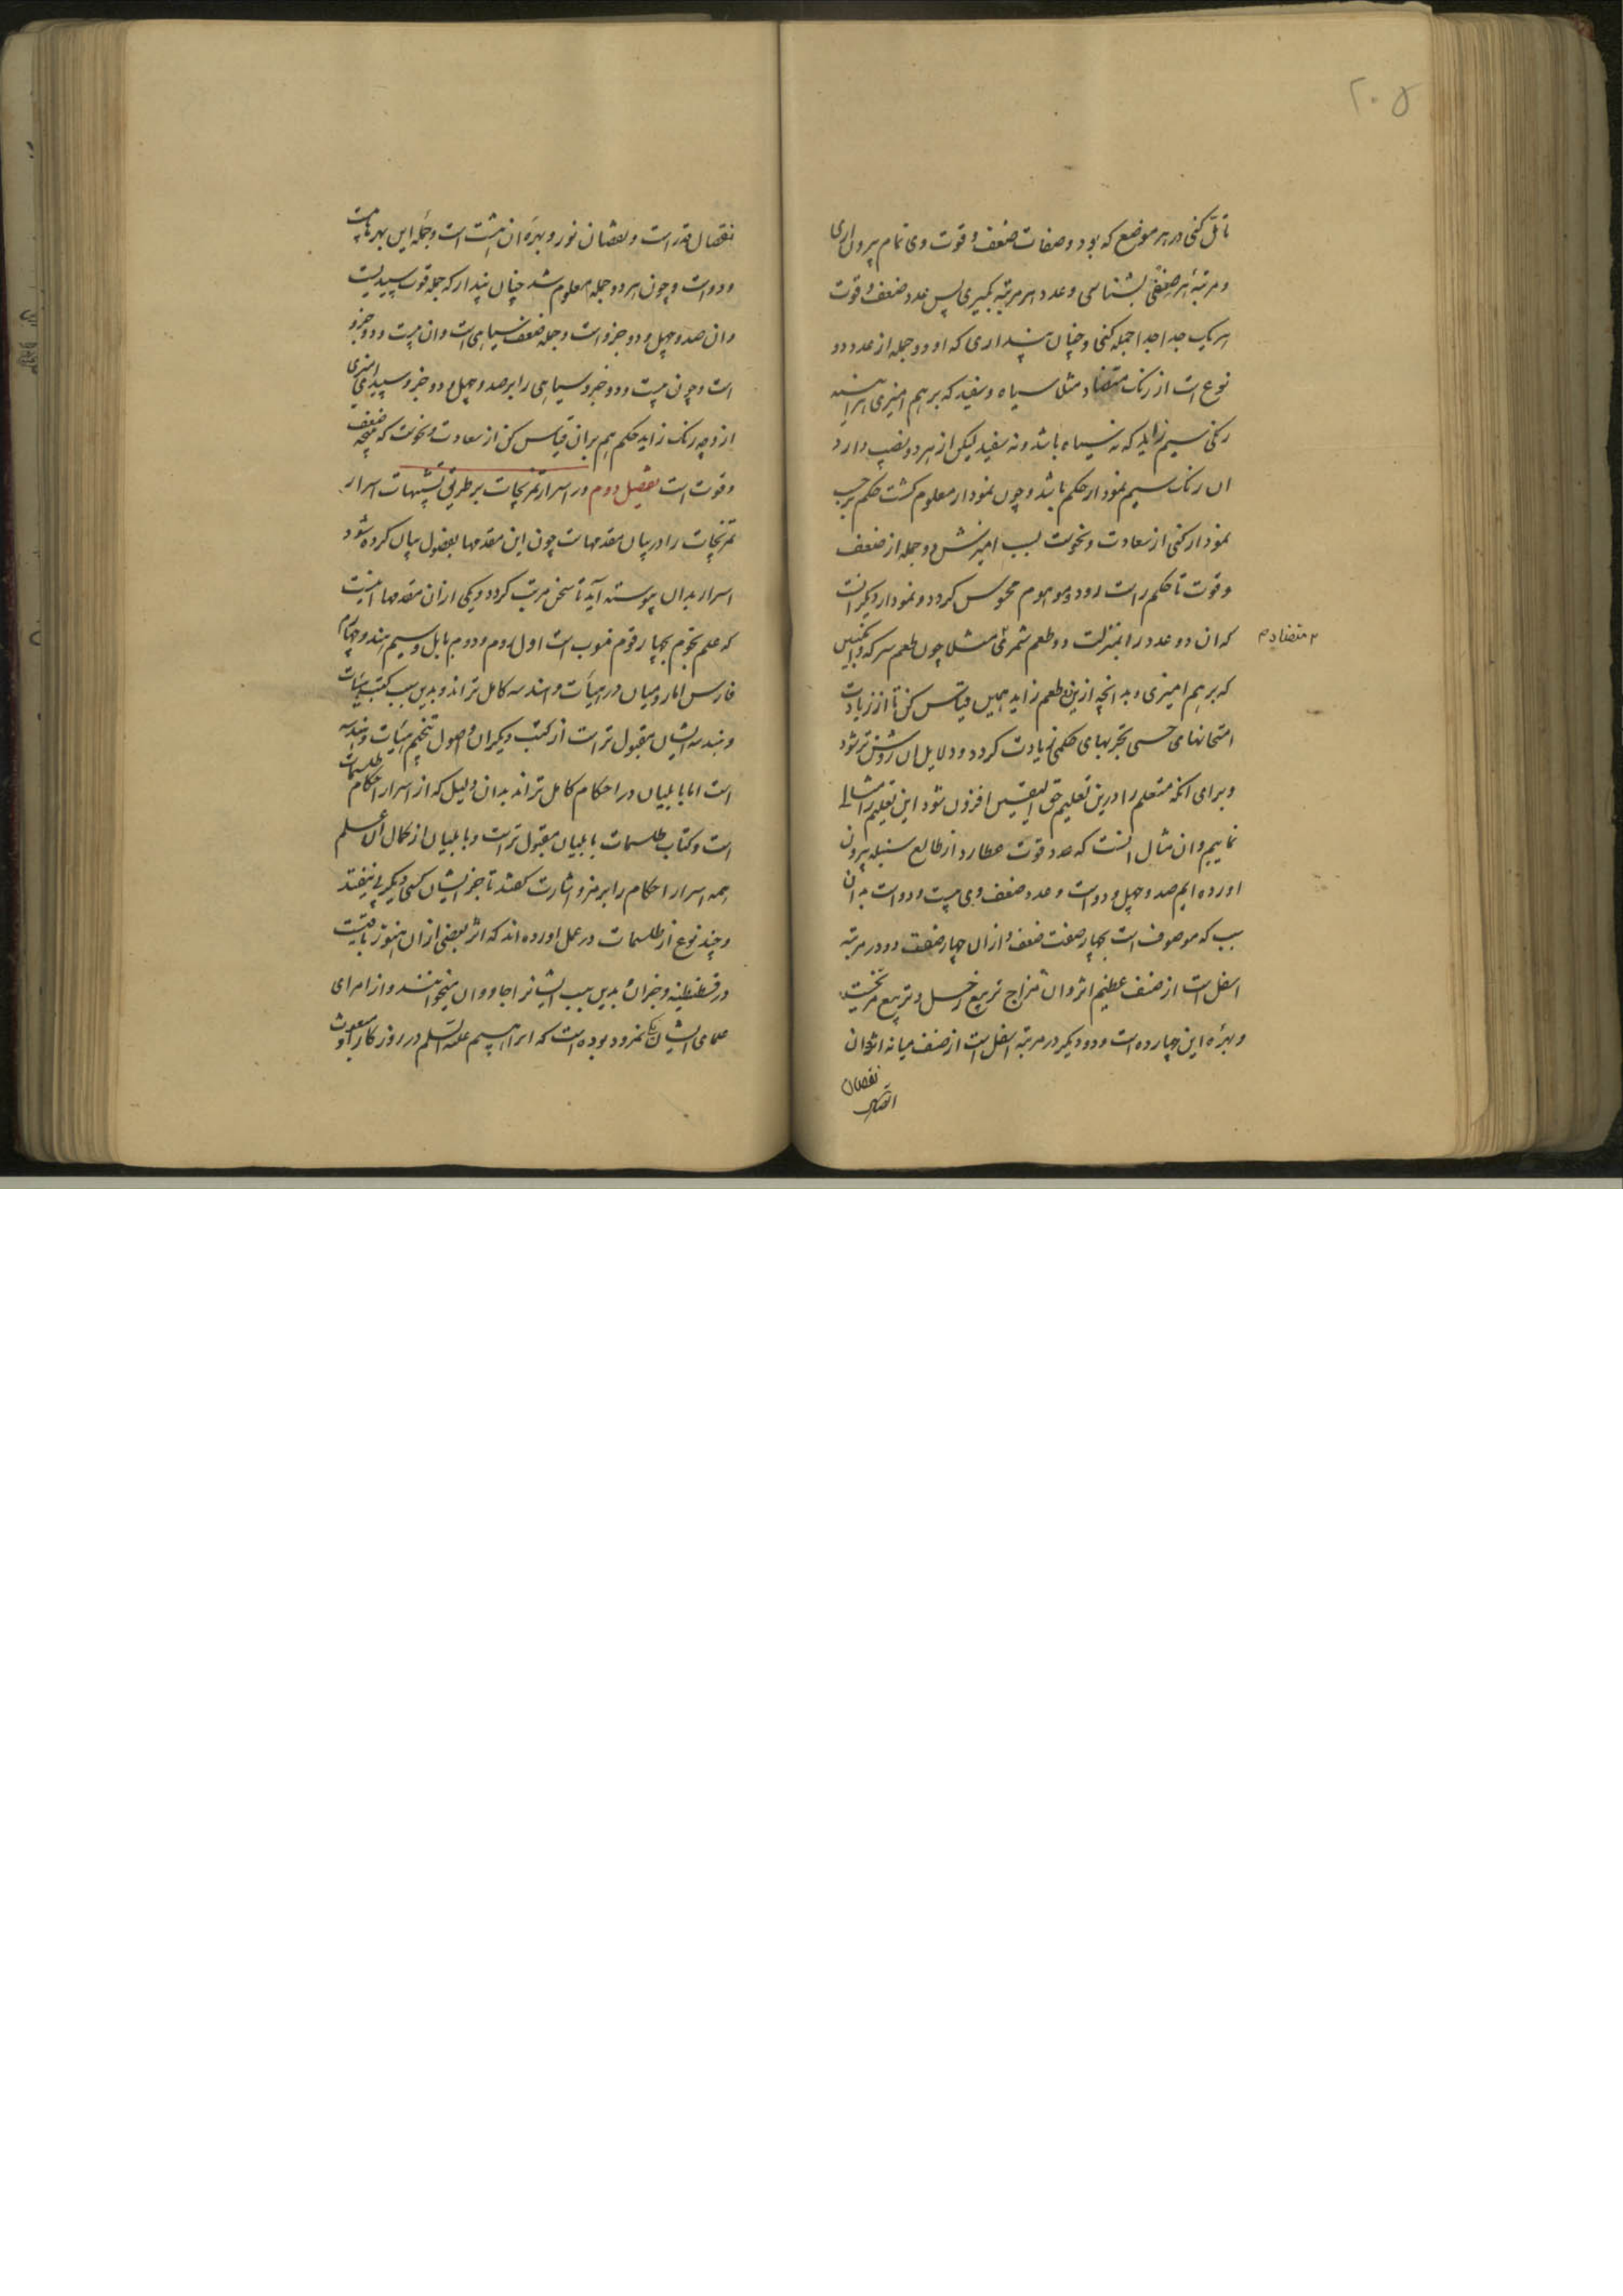 ۲۰۵
تأمل کنی در هر موضع که بود و صفات ضعف و قوت وی تمام بیرون اری
و مرتبهٔ هر صفتی بشناسی و عدد هر مرتبه بگیری پس عدد ضعف و قوت
هر یک جدا جدا جمله کنی و چنان پنداری که او دو جمله از عدد دو
نوع است از رنک متضاد مثلا سیاه و سفید که بر هم امیزی هراینه
رنکی سیم زاید که نه سیاه باشد و نه سفید لیکن از هر دو نصیب دارد
ان رنک سیم نمودار حکم باشد و چون نمودار معلوم کشت حکم بر حسب
نمودار کنی از سعادت و نحوست بسبب امیزش دو جمله از ضعف
و قوت تا حکم راست رود و موهوم محسوس کردد و نمودار دیکر انست
که ان دو عدد را بمنزلت دو طعم شمری مثلا چون طعم سرکه و انکبین
۲ متضاد م
که بر هم امیزی و بدانچه ازین دو طعم زاید همین قیاس کن تا از زیادت
امتحانهای حسی تجربهای حکمی زیادت کردد و دلایل ان روشن‌تر شود
و برای انکه متعلم را درین تعلیم حق الیقین افزون شود این تعلیم را مثالی
نماییم و ان مثال انست که عدد قوت عطارد از طالع سنبله بیرون
اورده ایم صد و چهل و دو است و عدد ضعف وی بیست و دو است بدان
سبب که موصوف است بچهار صفت ضعف و از ان چهار صفت دو در مرتبه
اسفل است از صنف عظیم اثر و ان مزاج تربیع زحل و تربیع مریخست
و بهرهٔ این چهارده است و دو دیکر در مرتبه اسفل است از صنف میانه اثر و ان
نقصان
نقصان قدر است و نقصان نور و بهره ان هشت است و جمله این بهرها بیست
و دو است و چون هر دو جمله معلوم شد چنان پندار که جمله قوت سپیدیست
و ان صد و چهل و دو جزو است و جمله ضعف سیاهی است و ان بیست و دو جزو
است و چون بیست و دو جزو سیاهی را بر صد و چهل و دو جزو سپیدی امیزی
از وچه رنک زاید حکم هم بران قیاس کن از سعادت و نحوست که نتیجه ضعف
و قوت است تفصیل دوم در اسرار تمزیجات بر طریق تشبیهات اسرار
تمزیجات را در بیان مقدمهاست چون این مقدمها بفصول بیان کرده شود
اسرار بدان پیوسته آید تا سخن مرتب کردد و یکی از ان مقدمها اینست
که علم نجوم بچهار قوم منسوب است اول روم و دوم بابل و سیم هند و چهارم
فارس اما رومیان در هیأت و هندسه کامل تراند و بدین سبب کتب هیئات
و هندسه ایشان مقبول تر است از کتب دیکران و اصول تنجیم هیئات و هندسه
است اما بابلیان در احکام کامل تراند بدان دلیل که از اسرار احکام طلسمات
است و کتاب طلسمات بابلیان مقبول تر است و بابلیان از کمال ان علم
همه اسرار احکام را برمز و اشارت کفتند تا جز ایشان کسی دیکر پی نیفتد
و چند نوع از طلسمات در عمل اورده اند که اثر بعضی از ان هنوز باقیست
در قسطنطنیه و جز ان بدین سبب ایشانرا جادوان میخوانند و از امرای
علمای ایشان یکی نمرود بوده است که ابراهیم علیه السلم در روزکار او مبعوث